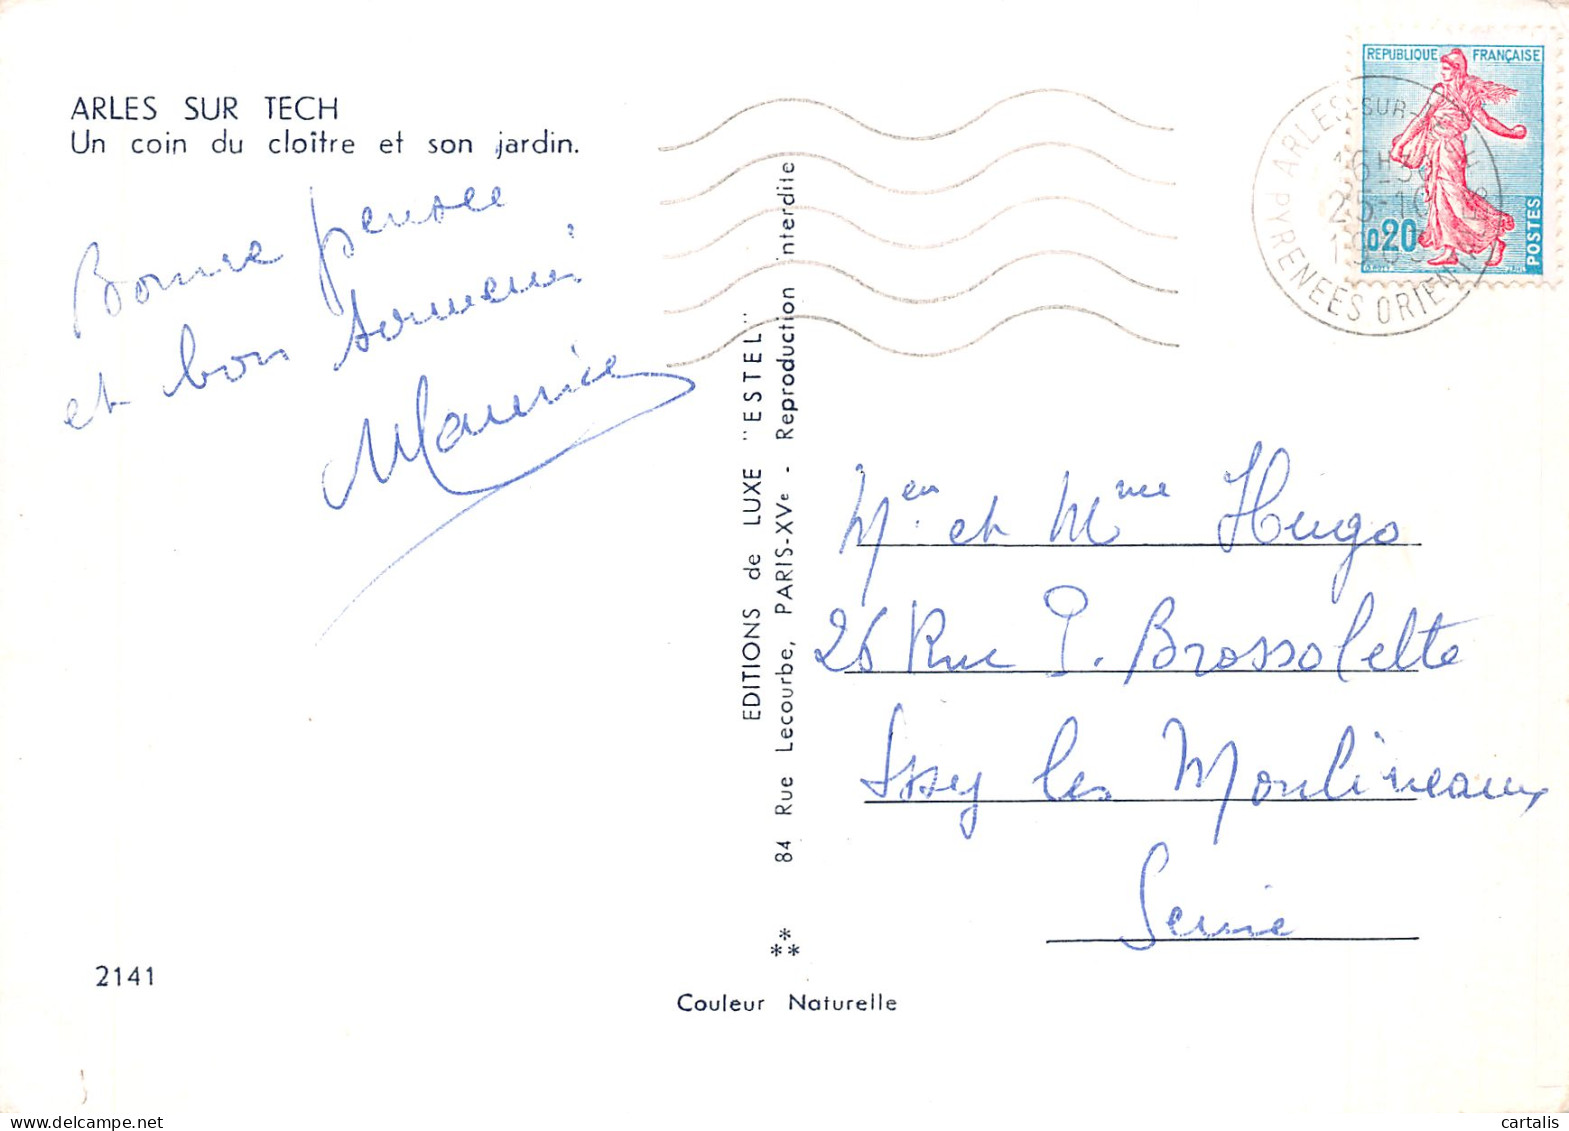 ARLES SUR TECH
Un coin du cloître et son jardin.
Bonne pensée
et bon souvenir
Maurice
2141
EDITIONS de LUXE "ESTEL"
84 Rue Lecourbe, PARIS-XVe - Reproduction interdite
Couleur Naturelle
REPUBLIQUE FRANÇAISE
0,20
POSTES
ARLES-SUR-TECH
16H30
25-10
PYRENEES ORIENTALES
Mr et Mme Hugo
26 Rue P. Brossolette
Issy les Moulineaux
Seine
cartalis